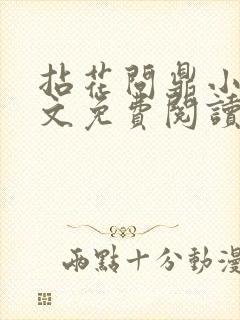 拈花問鼎小
文免費閱讀
兩點十分動漫